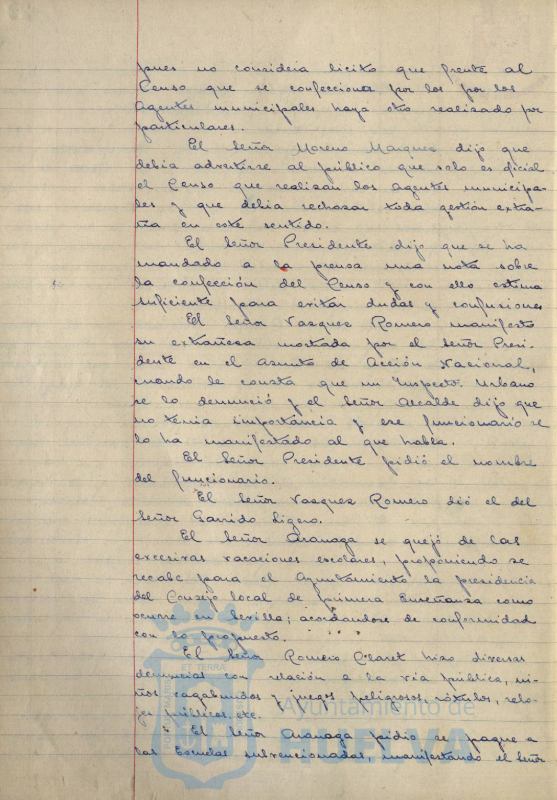 pues no considera licito que frente al
Censo que se confecciona por los por los
Agentes municipales haya otro realizado por
particulares.
El Señor Moreno Marquez dijo que
debia advertirse al público que solo es oficial
el Censo que realizan los agentes municipa-
les y que debia rechazar toda gestión extra-
ña en este sentido.
El Señor Presidente dijo que se ha
mandado a la prensa una nota sobre
la confección del Censo y con ello estima
suficiente para evitar dudas y confusiones
El Señor Vazquez Romero manifestó
su extrañeza mostrada por el Señor Presi-
dente en el asunto de Acción Nacional,
cuando le consta que un Inspector Urbano
se lo denunció y el Señor Alcalde dijo que
no tenia importancia y ese funcionario se
lo ha manifestado al que habla.
El Señor Presidente pidió el nombre
del funcionario.
El Señor Vazquez Romero dió el del
Señor Garrido Ligero.
El Señor Aranaga se quejó de las
excesivas vacaciones escolares, proponiendo se
recabe para el Ayuntamiento la presidencia
del Consejo local de primera Enseñanza como
ocurre en Sevilla; acordandose de conformidad
con lo propuesto.
El Señor Romero Claret hizo diversas
denuncias con relación a la via pública, ni-
ños vagabundos y juegos peligrosos, rótulos, relo-
jes públicos, etc.
El Señor Aranaga pidió se pague a
las Escuelas subvencionadas, manifestando el Señor
ET TERRA
Ayuntamiento de
HUELVA